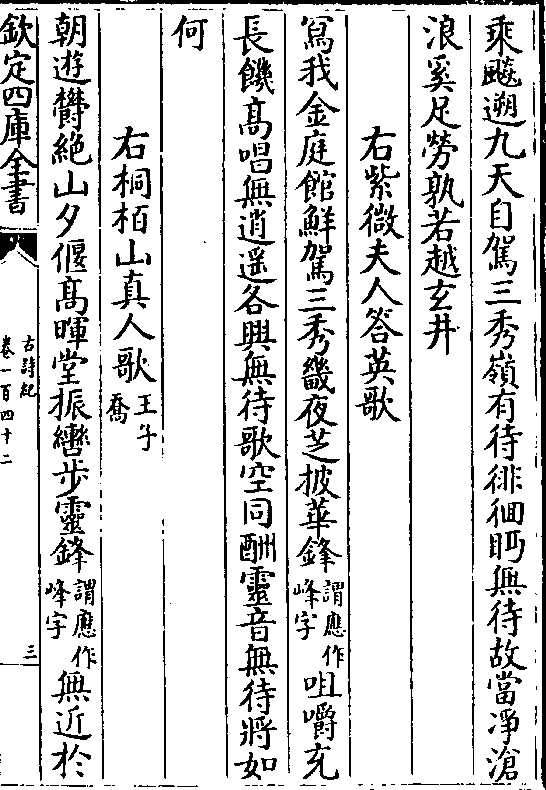 乘飈遡九天自駕三秀嶺有待徘徊眄無待故當淨滄
浪奚足勞孰若越玄井
右紫微夫人答英歌
寫我金庭館鮮駕三秀畿夜芝披華鋒謂應作峰字咀嚼充
長饑髙唱無逍遥各興無待歌空同酬靈音無待將如
何
右桐栢山真人歌王子喬
朝遊欝絶山夕偃髙暉堂振轡步靈鋒謂應作峰字無近於
欽定四庫全書
古詩紀
卷一百四十二
三